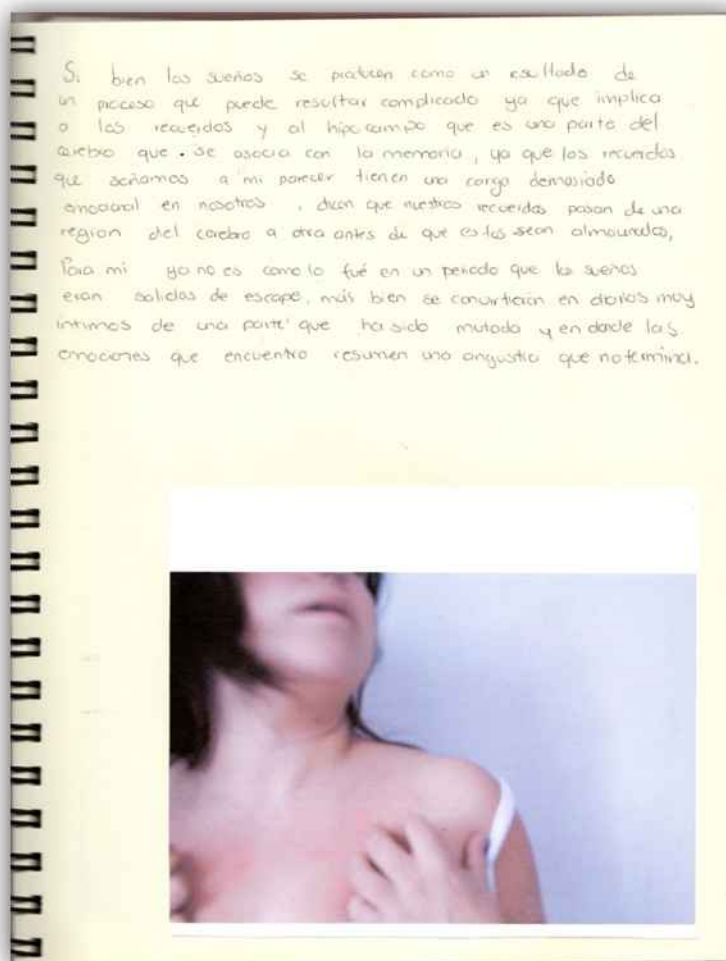 Si bien los sueños se producen como un resultado de
un proceso que puede resultar complicado ya que implica
a los recuerdos y al hipocampo que es una parte del
cerebro que . se asocia con la memoria, ya que los recuerdos
que soñamos a mi parecer tienen una carga demasiado
emocional en nosotros , dicen que nuestros recuerdos pasan de una
region del cerebro a otra antes de que estos sean almacenados,
Para mi ya no es como lo fué en un periodo que los sueños
eran salidas de escape, más bien se convirtieron en diarios muy
intimos de una parte que ha sido mutada y en donde las
emociones que encuentro resumen una angustia que no termina.